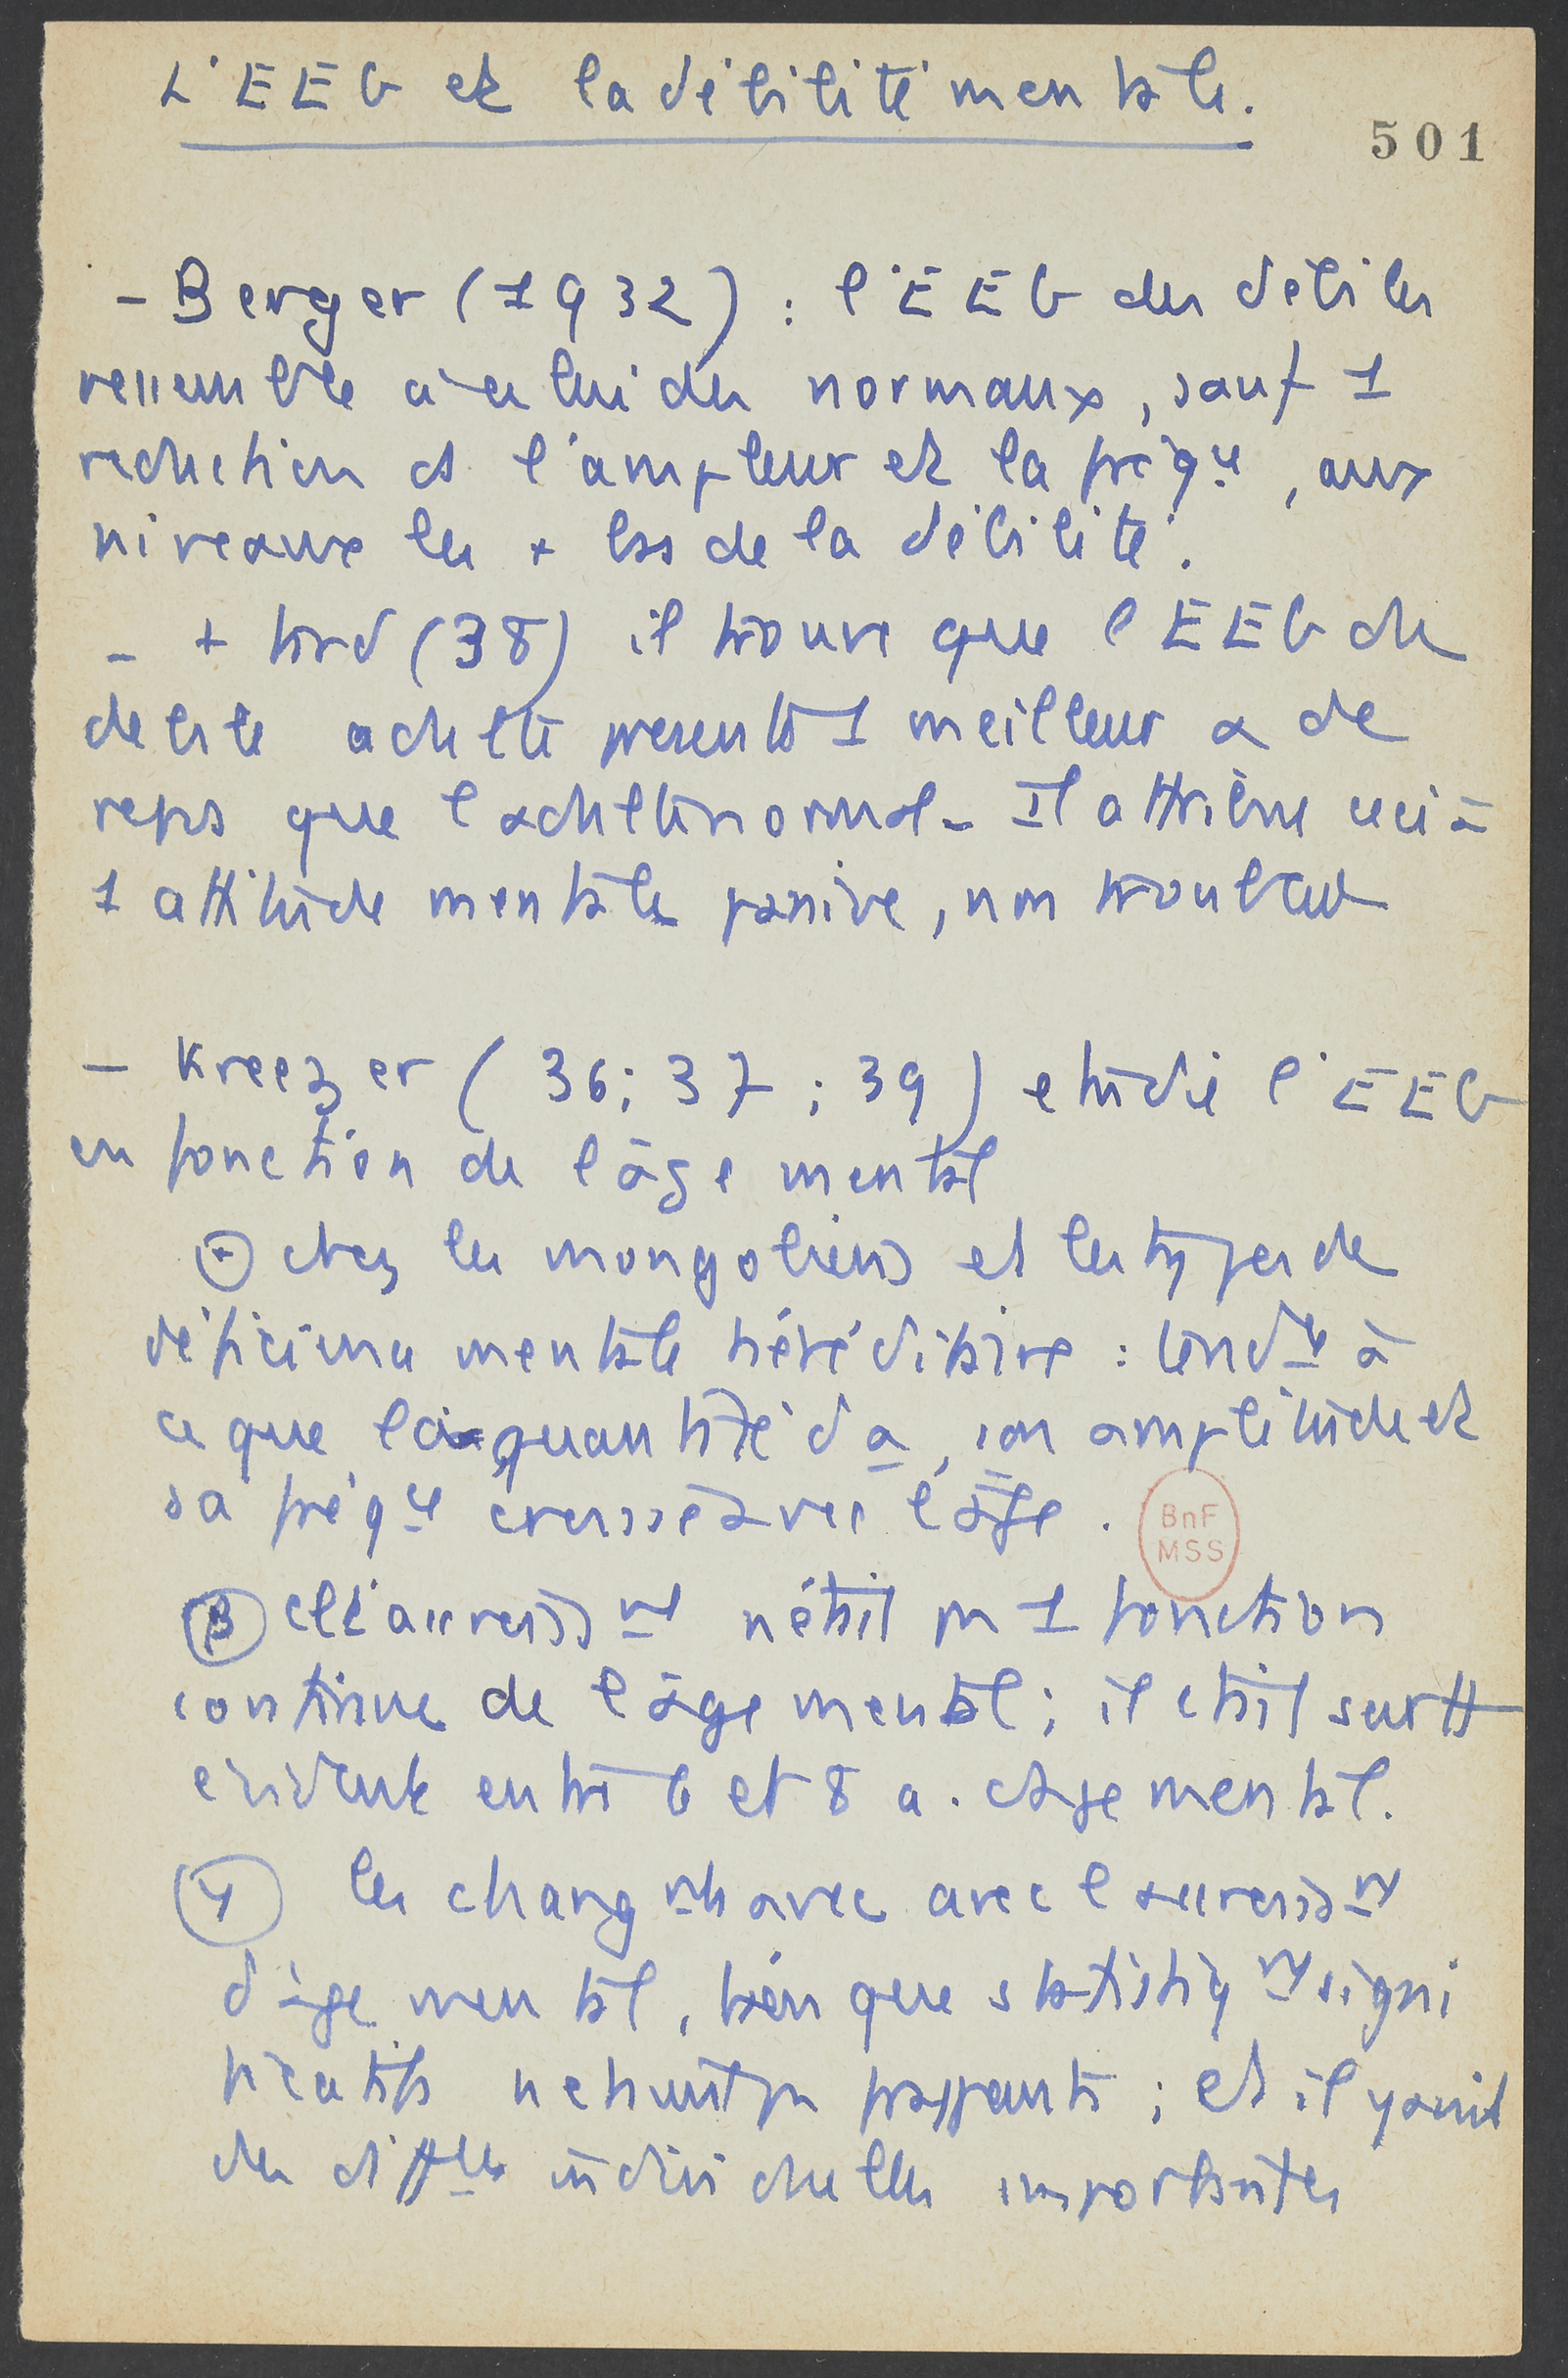 L'EEG et la débilité mentale.
501
- Berger (1932) : l'EEG des débiles
ressemble à celui des normaux, sauf 1
reduction ds l'ampleur et la fréqce, aux
niveaux les + bas de la débilité.
- + tard (38) il trouve que l'EEG du
debile adulte presente 1 meilleur α de
repos que l'adulte normal - Il attribue ceci à
1 attitude mentale passive, non troublée
- Kreezer (36; 37; 39) etudie l'EEG
en fonction de l'âge mental
α chez les mongoliens et les types de
déficience mentale héréditaire : tendce à
ce que la quantité d'α, son amplitude et
sa fréqce croisse avec l'âge.
BnF
MSS
β cet accrosst n'était pas 1 fonction
continue de l'âge mental; il était surtt
évident entre 6 et 8 a. d'âge mental.
γ les changmts avec avec l'accroisst
d'âge mental, bien que statistiqt signi
ficatifs n'etaient pas frappants; et il y avait
des diffces individuelles importantes